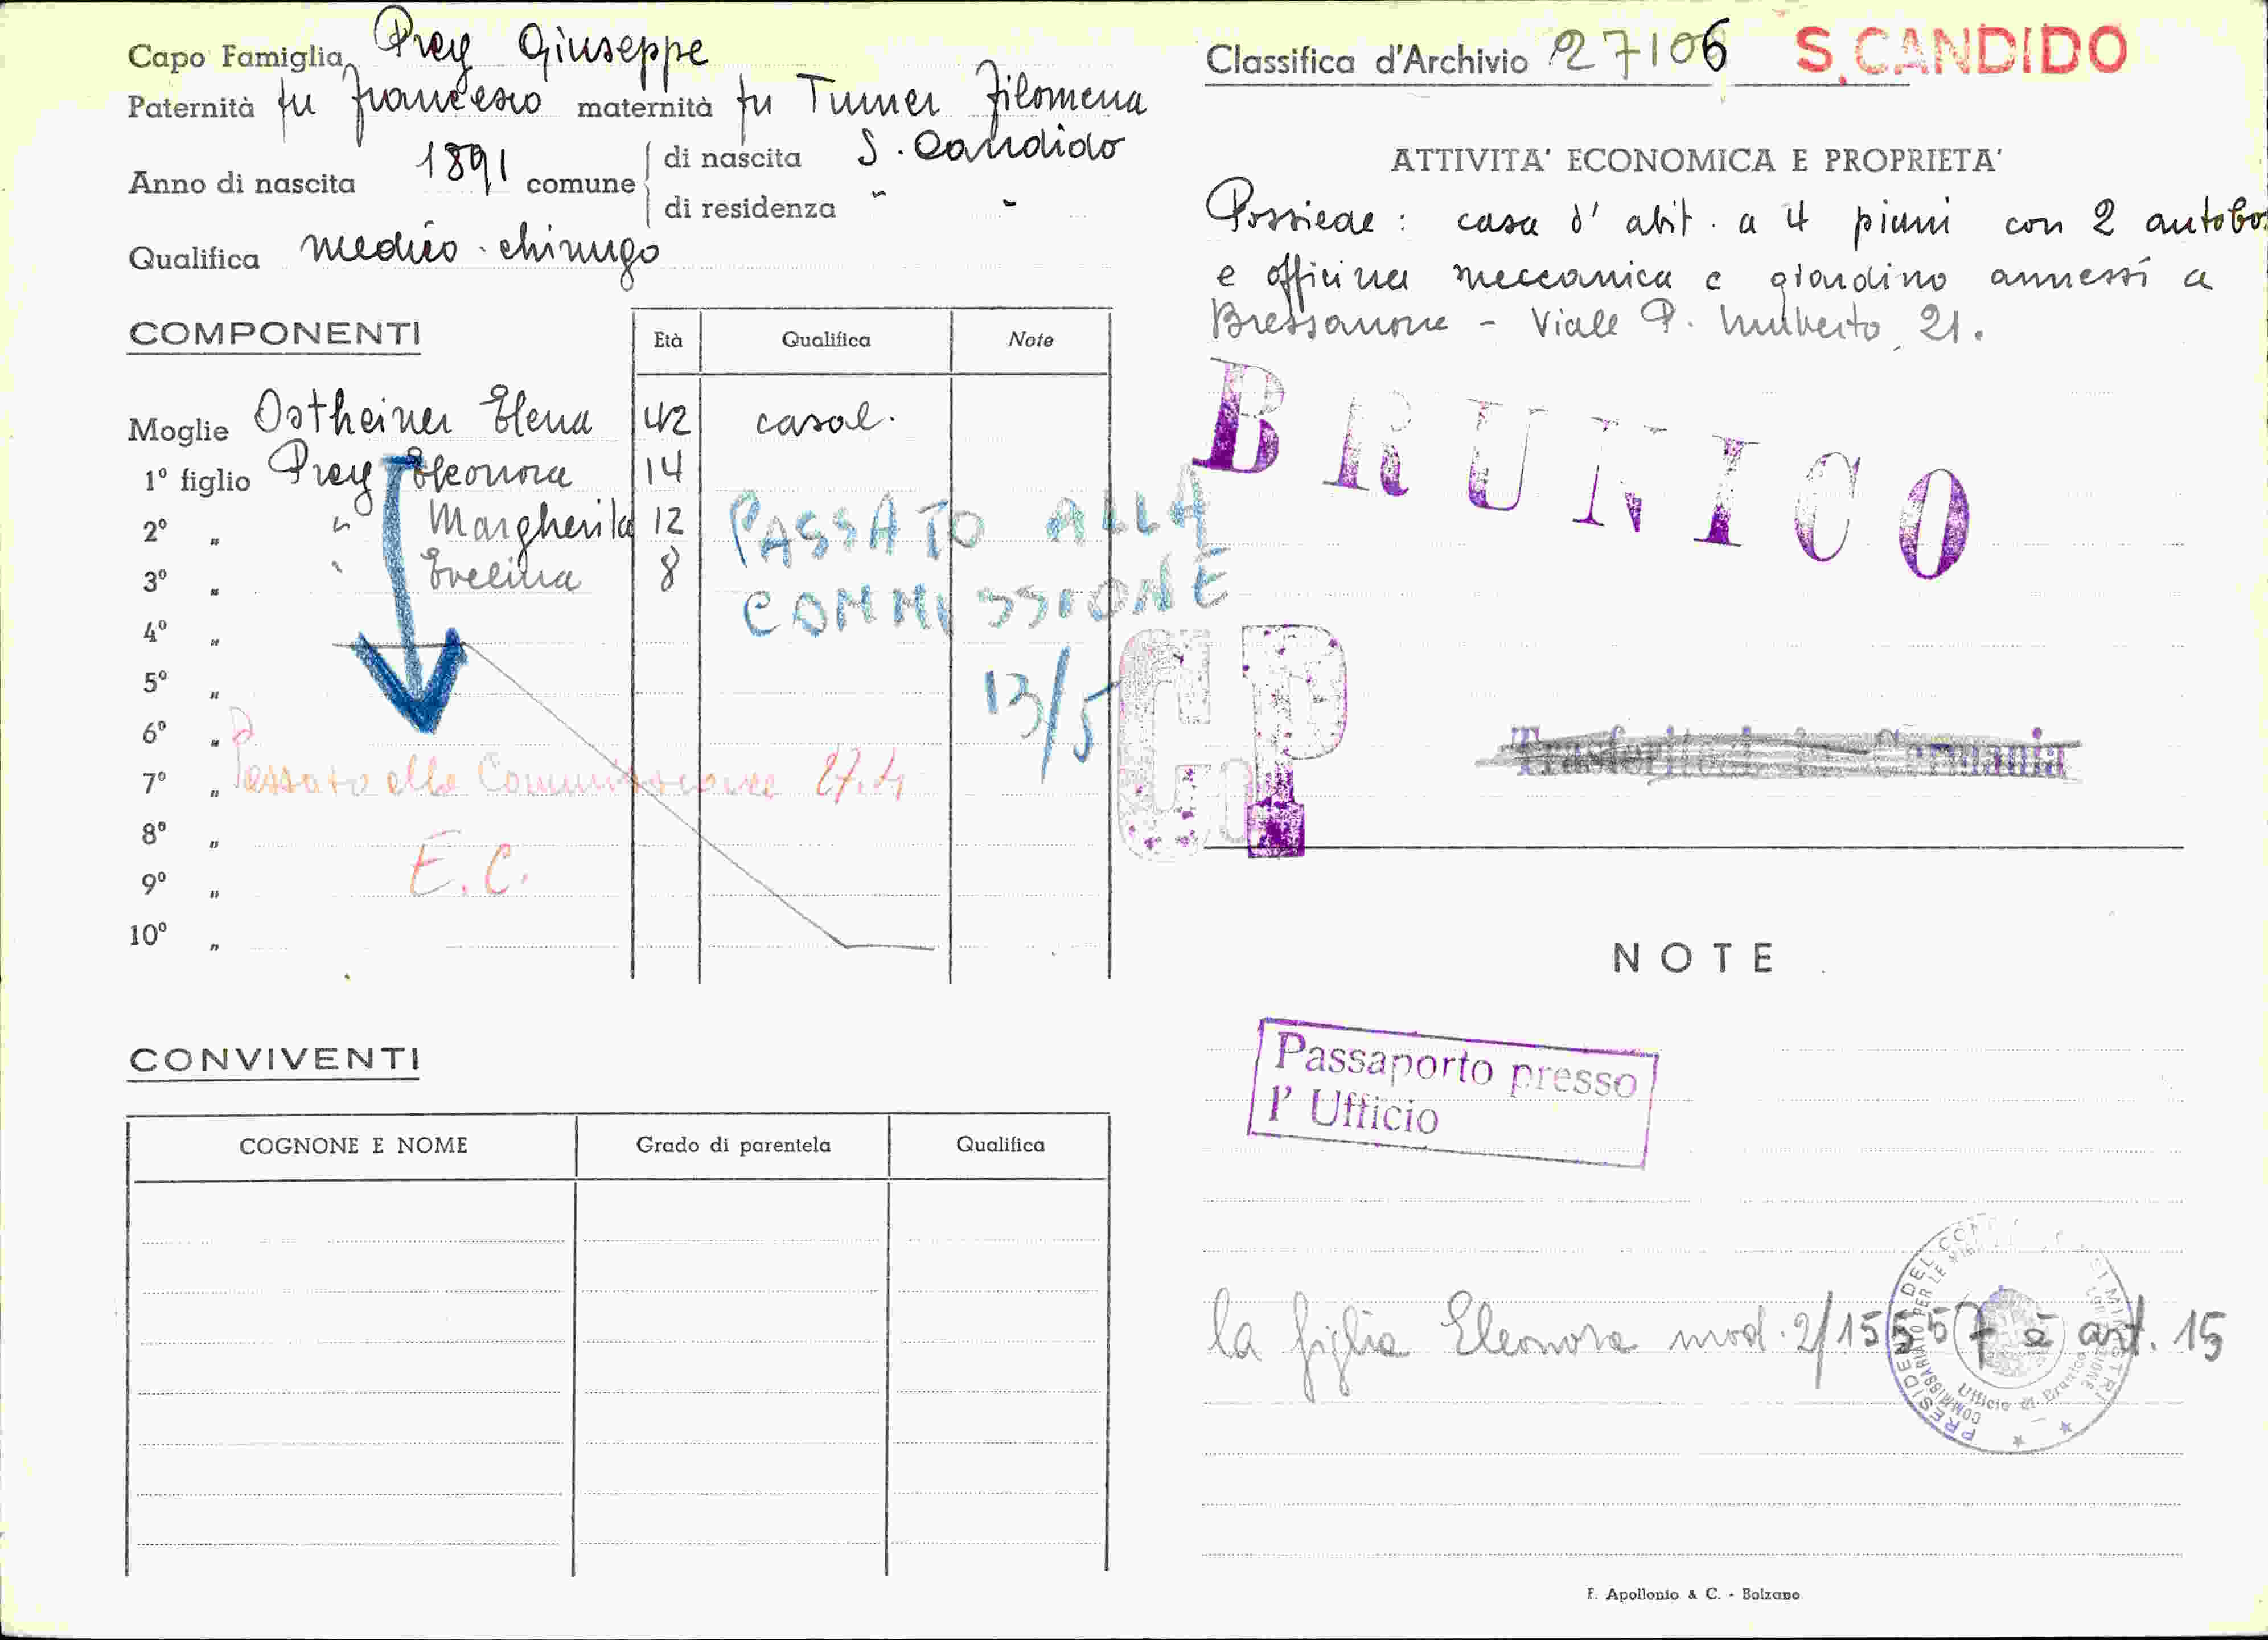 Capo Famiglia Prey Giuseppe
Paternità fu Francesco maternità fu Turner Filomena
Anno di nascita 1891 comune di nascita S. Candido
di residenza " "
Qualifica medico-chirugo
COMPONENTI
Età Qualifica Note
Moglie Ostheiner Elena 42 casal.
1º figlio Prey Eleonora 14
2º " " Margherita 12
3º " " Evelina 8
PASSATO ALLA
COMMISSIONE
13/5
4º "
5º "
6º "
7º " Passato alla Commissione 27.4
8º "
E.C.
9º "
10º "
CONVIVENTI
COGNONE E NOME Grado di parentela Qualifica
Classifica d'Archivio 27106 S. CANDIDO
ATTIVITA' ECONOMICA E PROPRIETA'
Possiede: casa d'abit. a 4 piani con 2 autobo.
e officina meccanica e giardino annessi a
Bressanone - Viale P. Umberto, 21.
BRUNICO
GP
Trasferitosi in Germania
NOTE
Passaporto presso
l'Ufficio
la figlia Eleonora mod. 2/15557 è art. 15
PRESIDENZA DEL CONSIGLIO DEI MINISTRI
COMMISSARIATO PER LE MIGRAZIONI
Ufficio di Brunico
F. Apollonio & C. - Bolzano